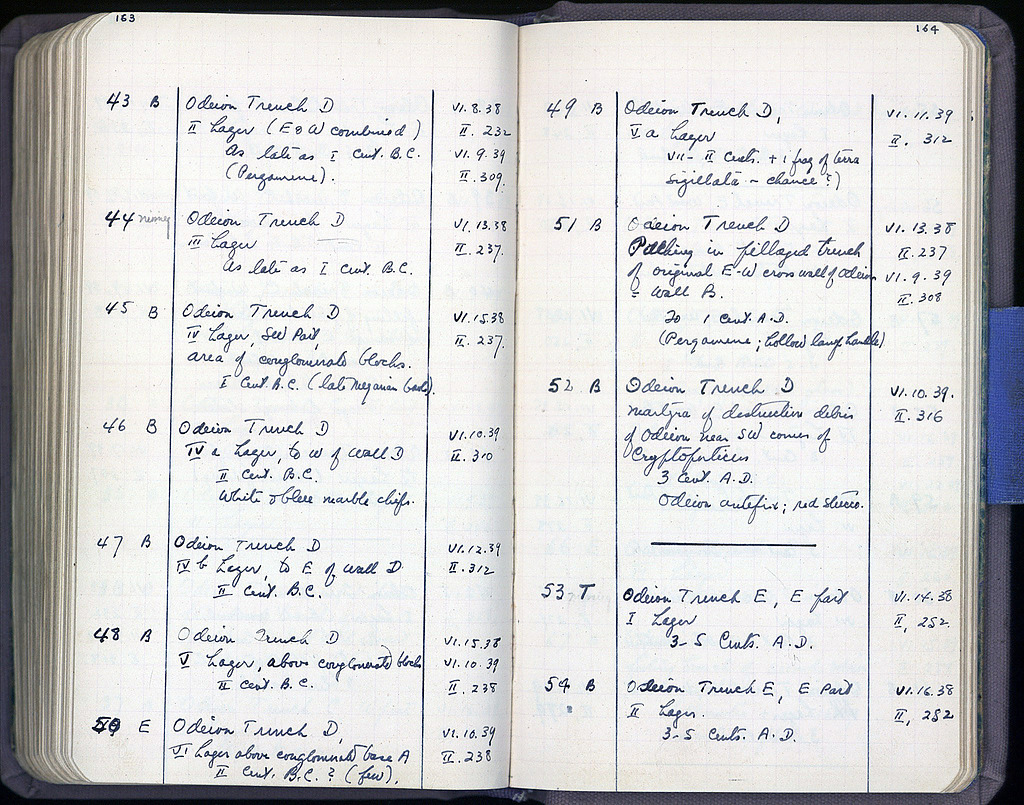 163
43 B Odeion Trench D VI.8.38
II Lager (E & W combined) II. 232
As late as I Cent. B.C. VI.9.39
(Pergamene). II. 309.
44 Odeion Trench D VI.13.38
III Lager II. 237.
As late as I Cent. B.C.
45 B Odeion Trench D VI.15.38
IV Lager, SW Part, II. 237.
area of conglomerate blocks.
I Cent. B.C. (late Megarian bowls).
46 B Odeion Trench D VI.10.39
IV a Lager, to W of Wall D II. 310
II Cent. B.C.
White & blue marble chips.
47 B Odeion Trench D VI.12.39
IV b Lager, to E of Wall D II. 312
II Cent. B.C.
48 B Odeion Trench D VI.15.38
V Lager, above conglomerate blocks VI.10.39
II Cent. B.C. II. 238
50 E Odeion Trench D, VI.10.39
VI Lager above conglomerate base A II. 238
II Cent. B.C. ? (few).
164
49 B Odeion Trench D, VI.11.39
V a Lager II. 312
VII - II Cents. + 1 frag of terra
sigillata - chance ?)
51 B Odeion Trench D VI.13.38
Packing in pillaged trench II.237
of original E-W cross wall of Odeion VI.9.39
= Wall B. II. 308
To 1 Cent. A.D.
(Pergamene; hollow lamp handle)
52 B Odeion Trench D VI.10.39.
of destruction debris II. 316
of Odeion near SW corner of
Cryptoporticus
3 Cent. A.D.
Odeion antefix; red stucco.
53 T Odeion Trench E, E part VI.14.38
I Lager II, 252.
3-5 Cents. A.D.
54 B Odeion Trench E, E Part VI.16.38
II Lager. II, 252
3-5 Cents. A.D.